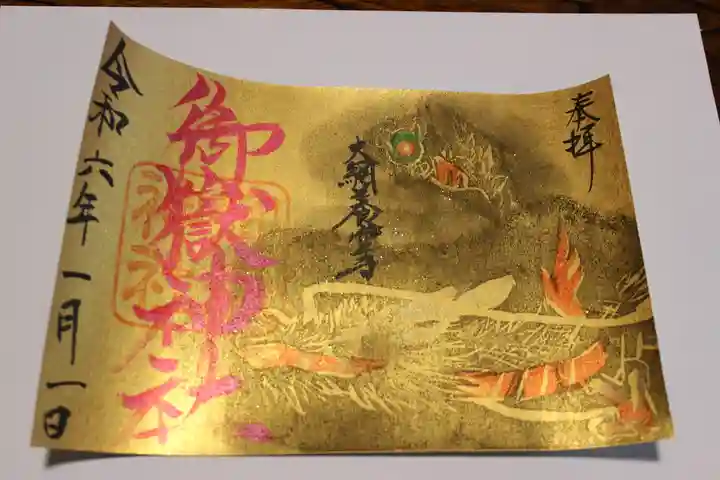 奉拝
御嶽神社
令和六年一月一日